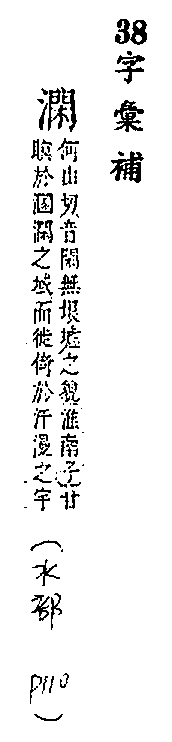 38字彙補
瀾
何山切音閑無垠墟之貌淮南子甘
瞑於溷瀾之域而徙倚於汗漫之宇
(水部 p110)